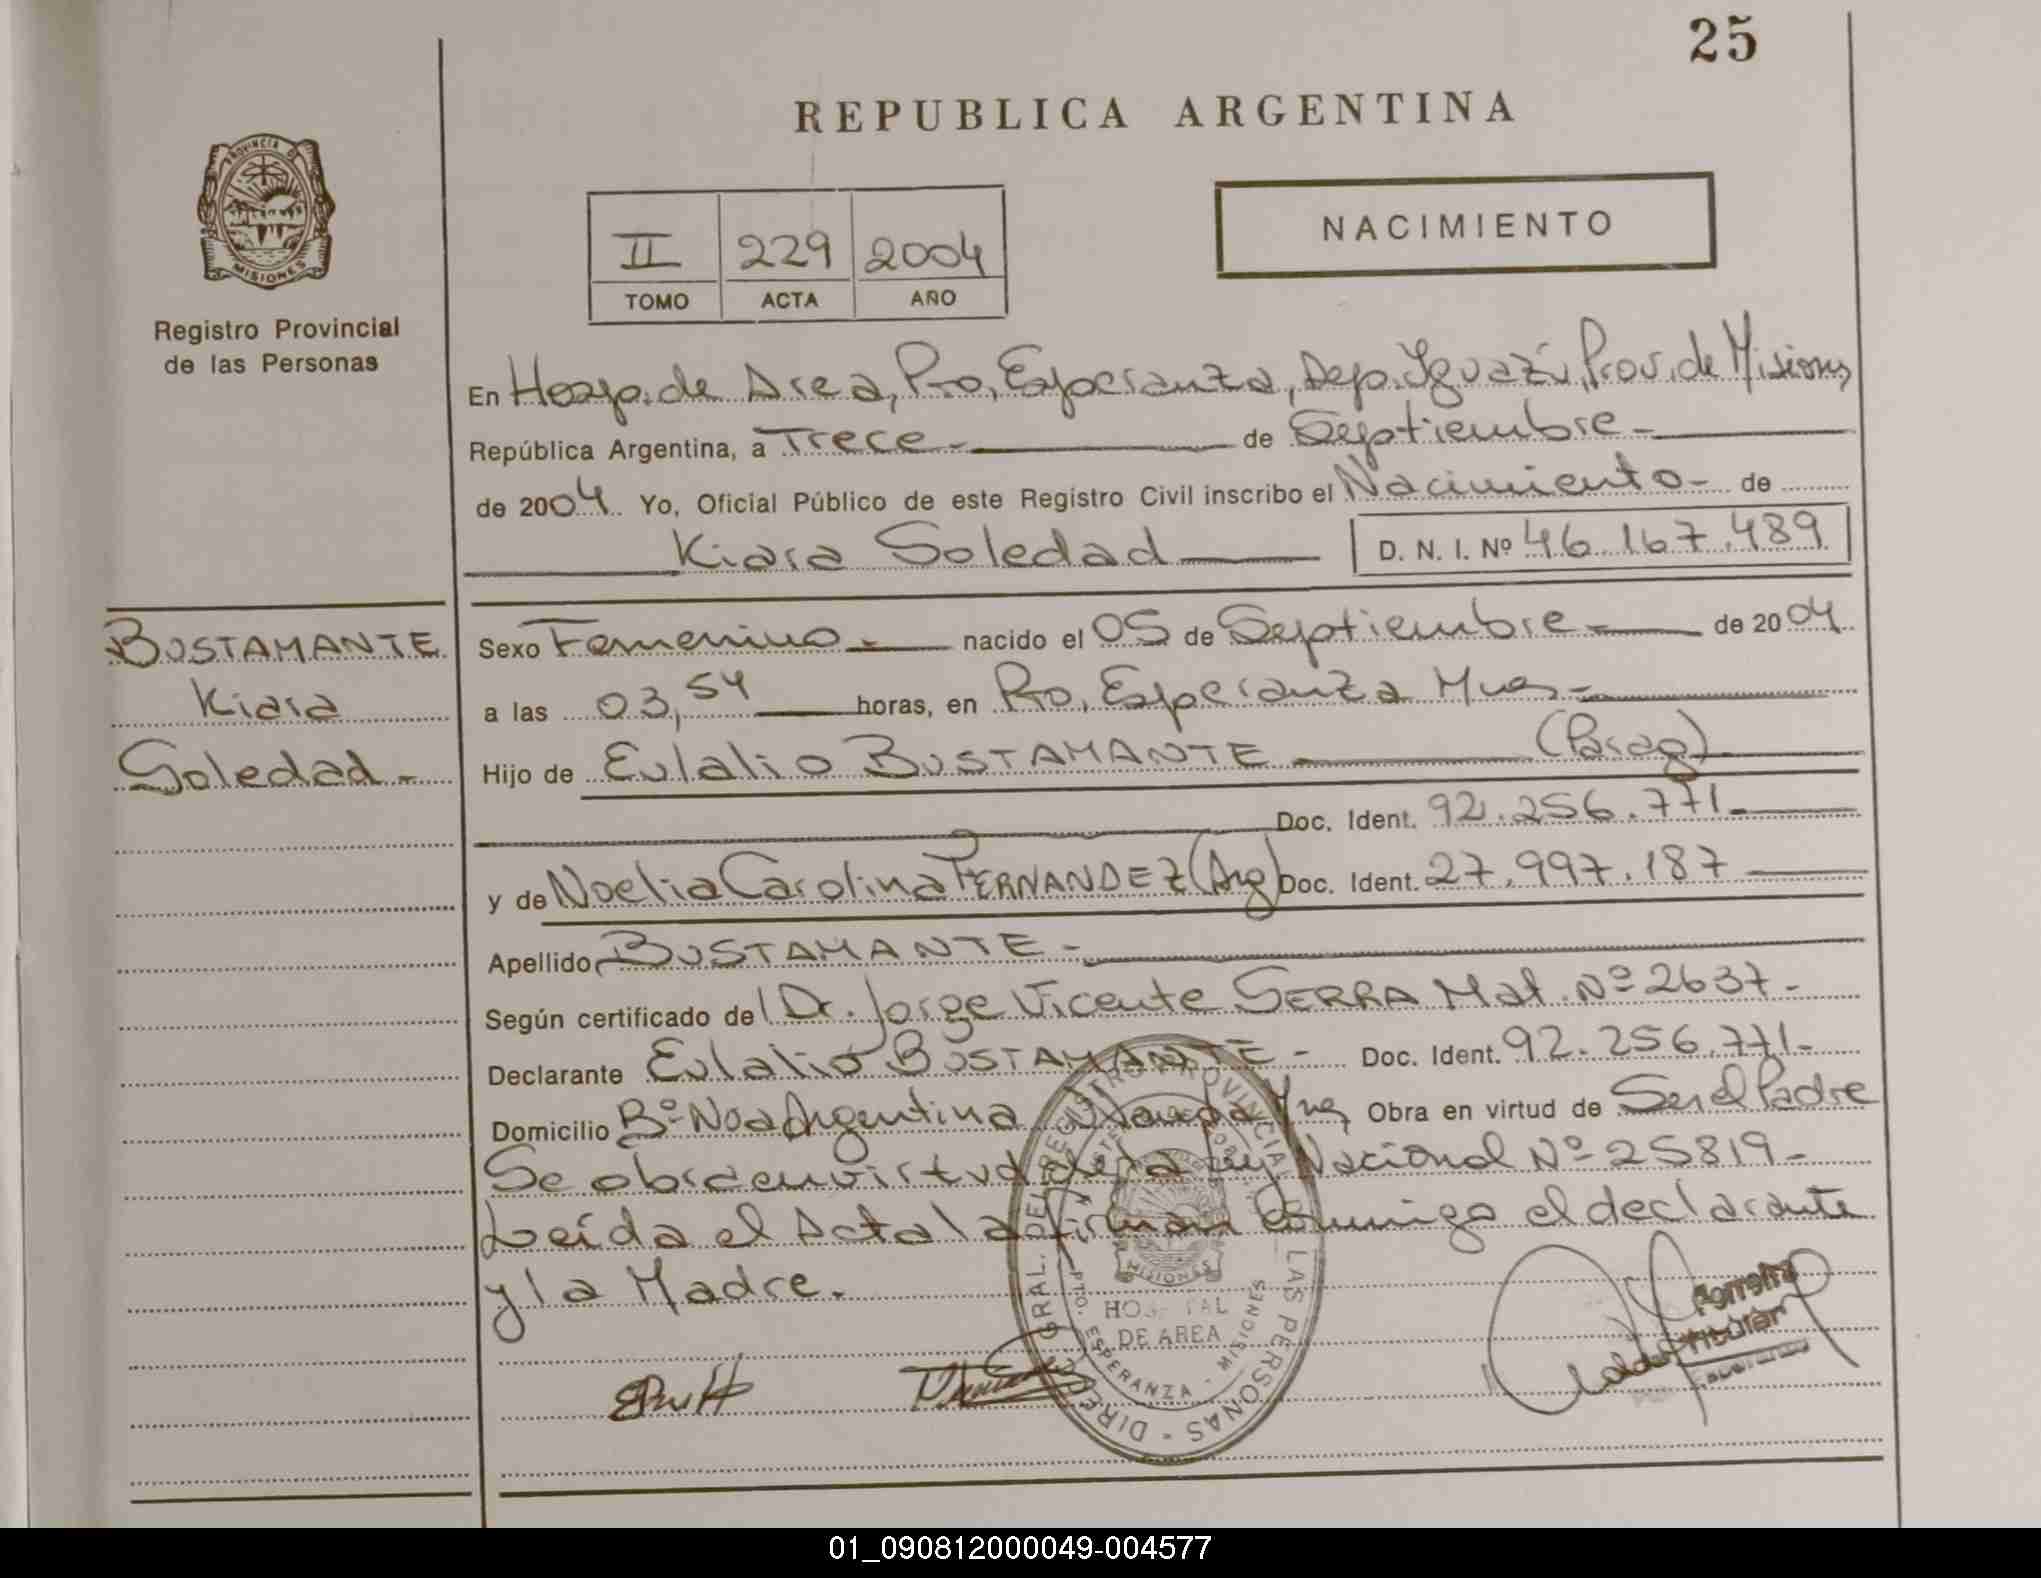 25
REPUBLICA ARGENTINA
PROVINCIA DE
MISIONES
Registro Provincial
de las Personas
NACIMIENTO
II 229 2004
TOMO ACTA AÑO
En Hosp. de Area, Pto, Esperanza, Dep. Iguazú, Prov. de Misiones
República Argentina, a Trece - de Septiembre -
de 2004 Yo, Oficial Público de este Registro Civil inscribo el Nacimiento - de
Kiara Soledad D. N. I. Nº 46.167.489
BUSTAMANTE
Kiara
Soledad -
Sexo Femenino - nacido el 05 de Septiembre - de 2004
a las 03,54 horas, en Pto, Esperanza Mnes -
Hijo de Eulalio BUSTAMANTE (Parag)
Doc. Ident. 92.256.771 -
y de Noelia Carolina FERNANDEZ (Arg) Doc. Ident. 27.997.187
Apellido BUSTAMANTE -
Según certificado del Dr. Jorge Vicente SERRA Mat. Nº 2637 -
Declarante Eulalio BUSTAMANTE - Doc. Ident. 92.256.771 -
Domicilio Bº Noa Argentina Obra en virtud de Ser el Padre
Se obra en virtud de la Ley Nacional Nº 25819 -
Leída el Acta la firman conmigo el declarante
y la Madre.
DIREC. GRAL. DEL REGISTRO PROVINCIAL DE LAS PERSONAS
MISIONES
HOSPITAL
DE AREA
PTO. ESPERANZA - MISIONES
Ferreira
Titular
01_090812000049-004577